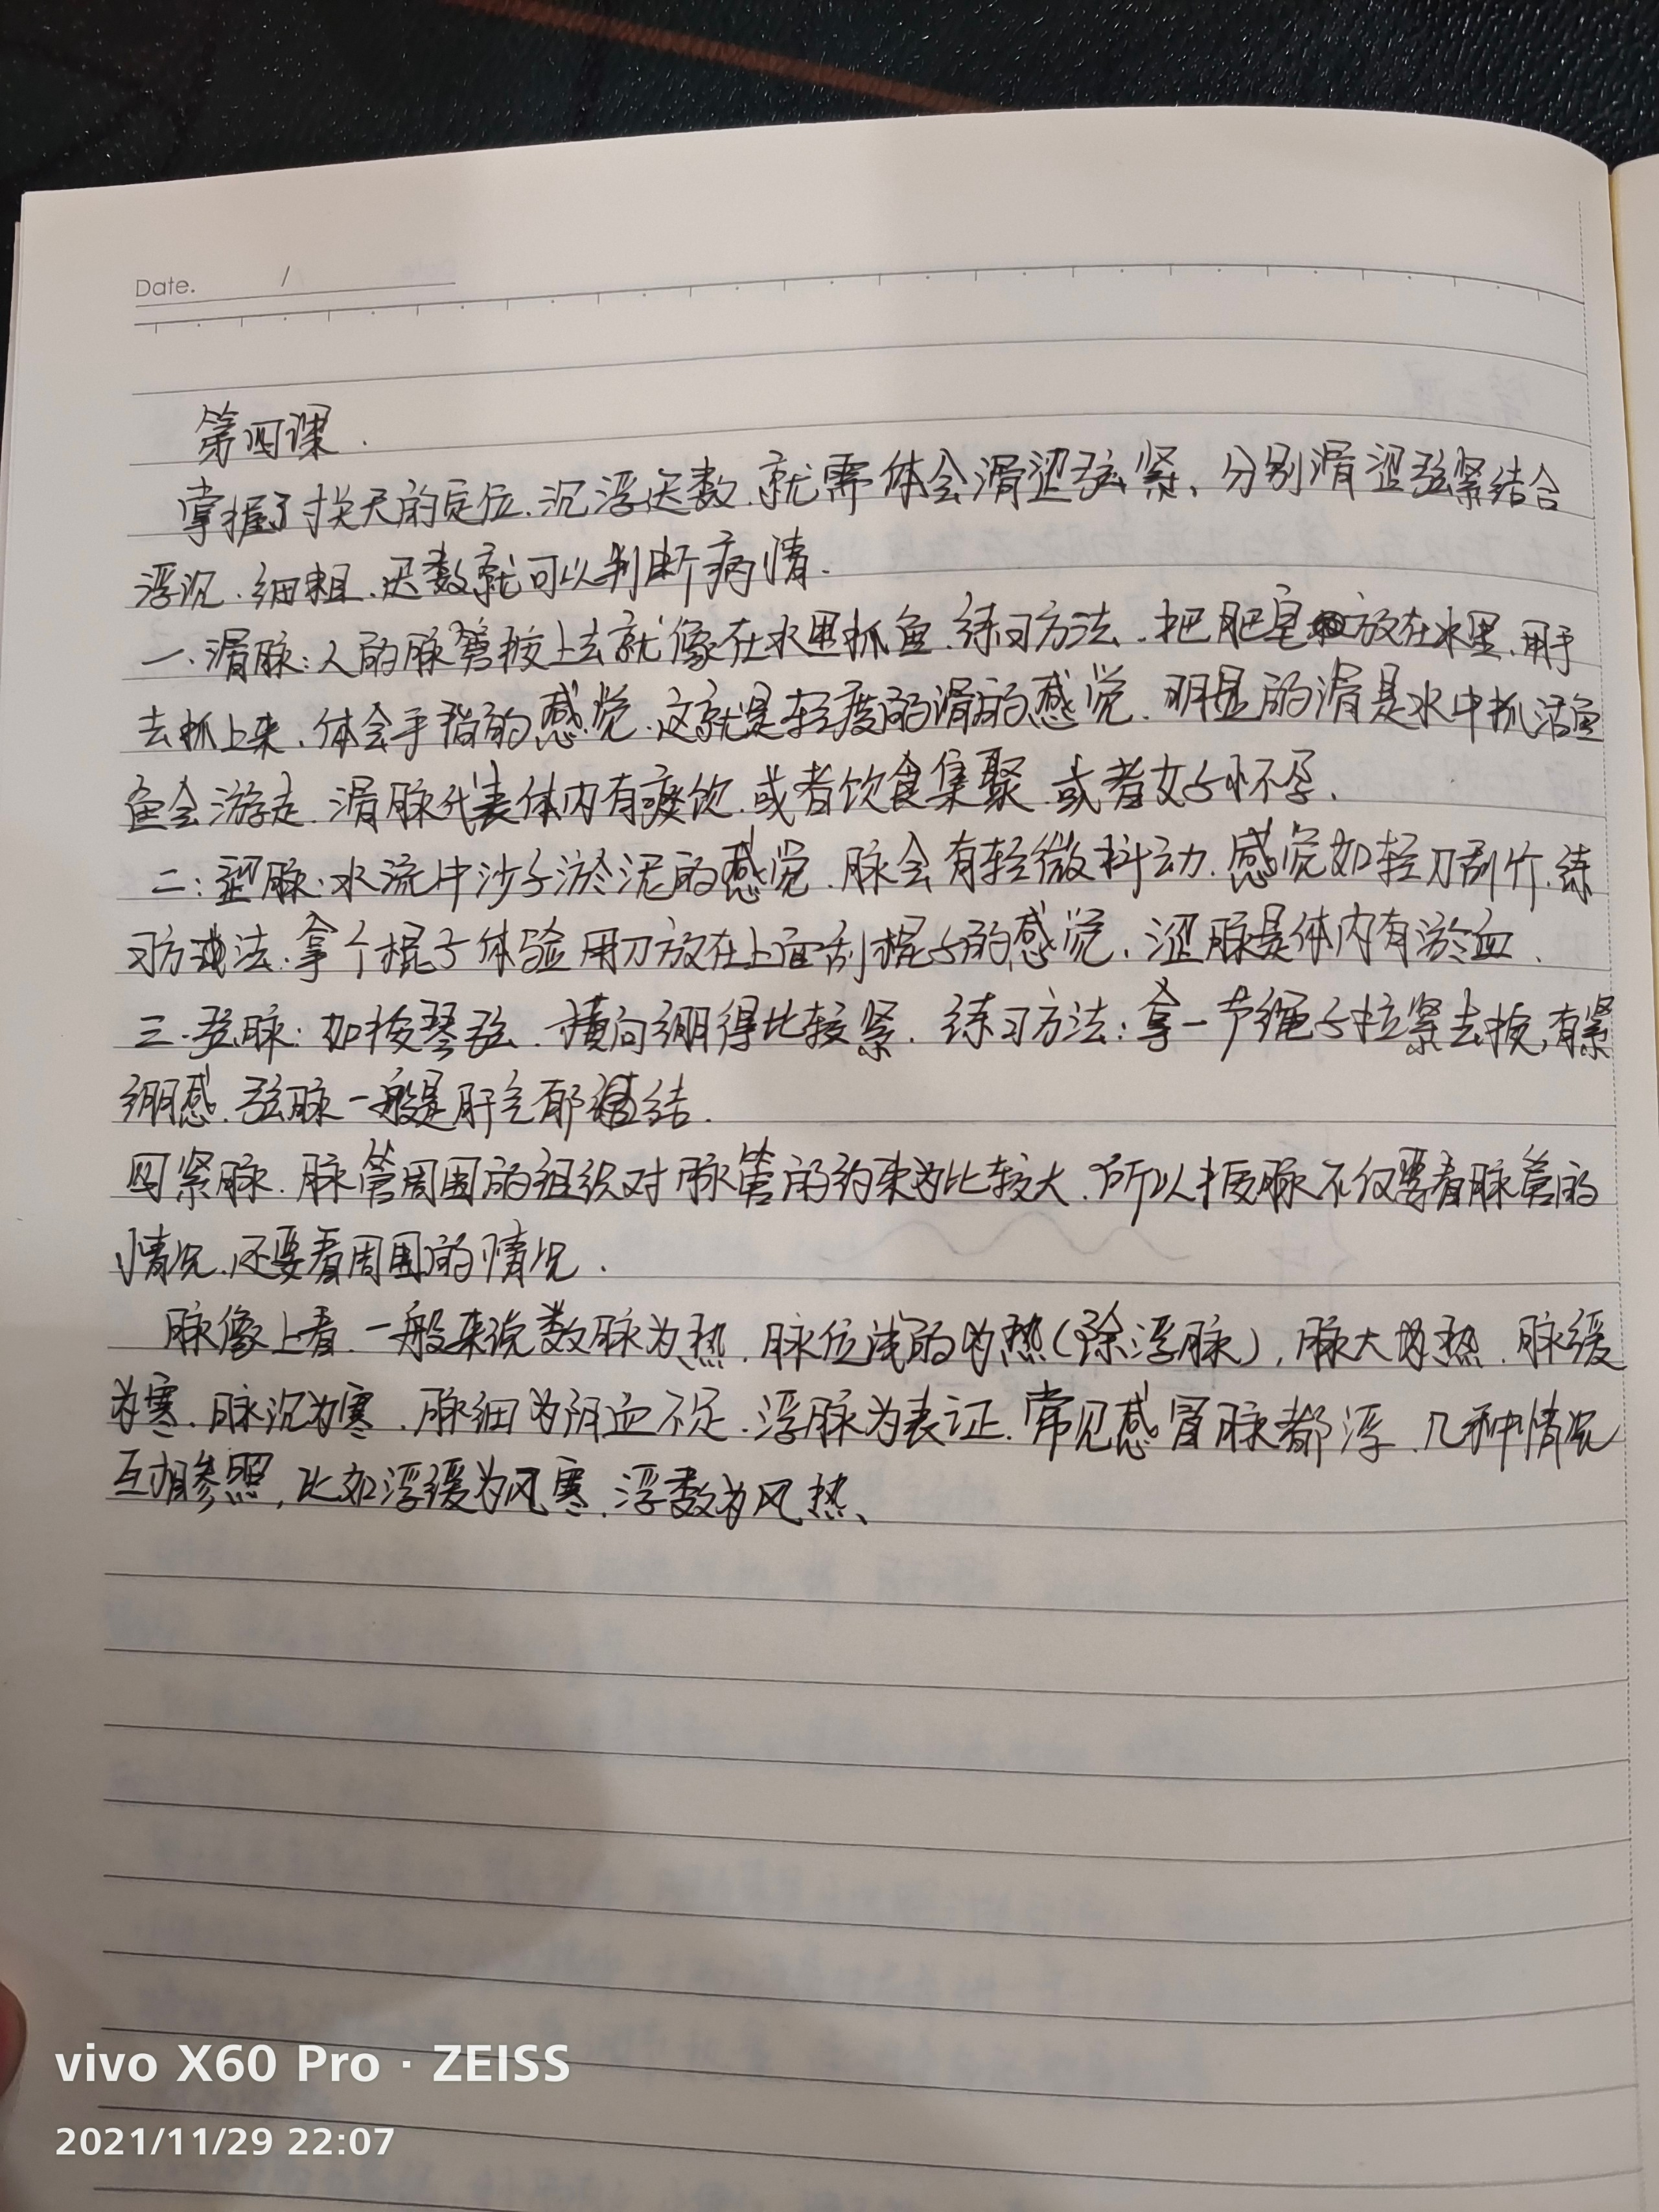 Date. /
第四课.
掌握了寸关尺的定位.沉浮迟数.就需体会滑涩弦紧、分别滑涩弦紧结合
浮沉.细粗.迟数就可以判断病情.
一.滑脉:人的脉管按上去就像在水里抓鱼.练习方法.把肥皂放在水里.用手
去抓上来.体会手指的感觉.这就是轻度的滑的感觉.明显的滑是水中抓活鱼
鱼会游走.滑脉代表体内有痰饮.或者饮食集聚.或者女子怀孕.
二:涩脉:水流中沙子淤泥的感觉.脉会有轻微抖动.感觉如轻刀刮竹.练
习方法:拿个棍子体验用刀放在上面刮棍子的感觉.涩脉是体内有淤血.
三.弦脉:如按琴弦.横向绷得比较紧.练习方法:拿一节绳子拉紧去按,有紧
绷感.弦脉一般是肝气郁结.
四紧脉.脉管周围的组织对脉管的约束为比较大.所以按脉不仅要看脉管的
情况.还要看周围的情况.
脉像上看.一般来说数脉为热.脉位浅的为热(除浮脉),脉大为热.脉缓
为寒.脉沉为寒.脉细为阴血不足.浮脉为表证.常见感冒脉都浮.几种情况
互相参照,比如浮缓为风寒.浮数为风热、
vivo X60 Pro · ZEISS
2021/11/29 22:07